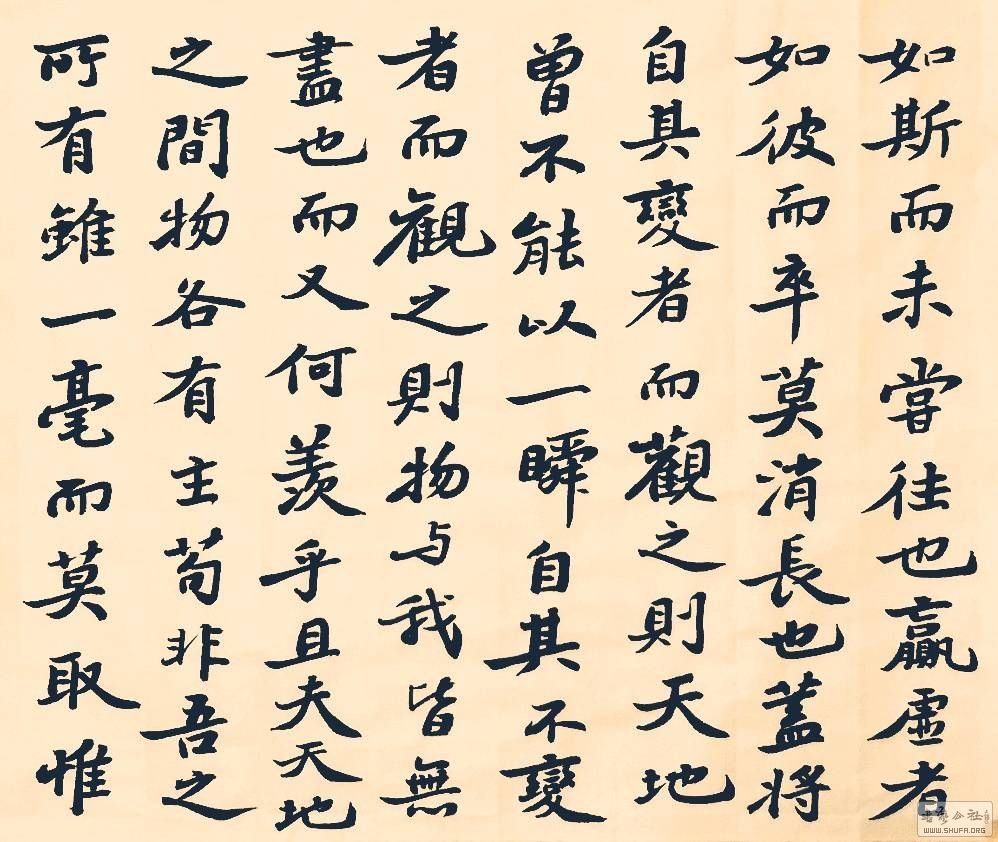 如斯而未嘗往也贏虛者
如彼而卒莫消長也蓋將
自其變者而觀之則天地
曾不能以一瞬自其不變
者而觀之則物与我皆無
盡也而又何羨乎且夫天地
之間物各有主苟非吾之
所有雖一毫而莫取惟
WWW.SHUFA.ORG